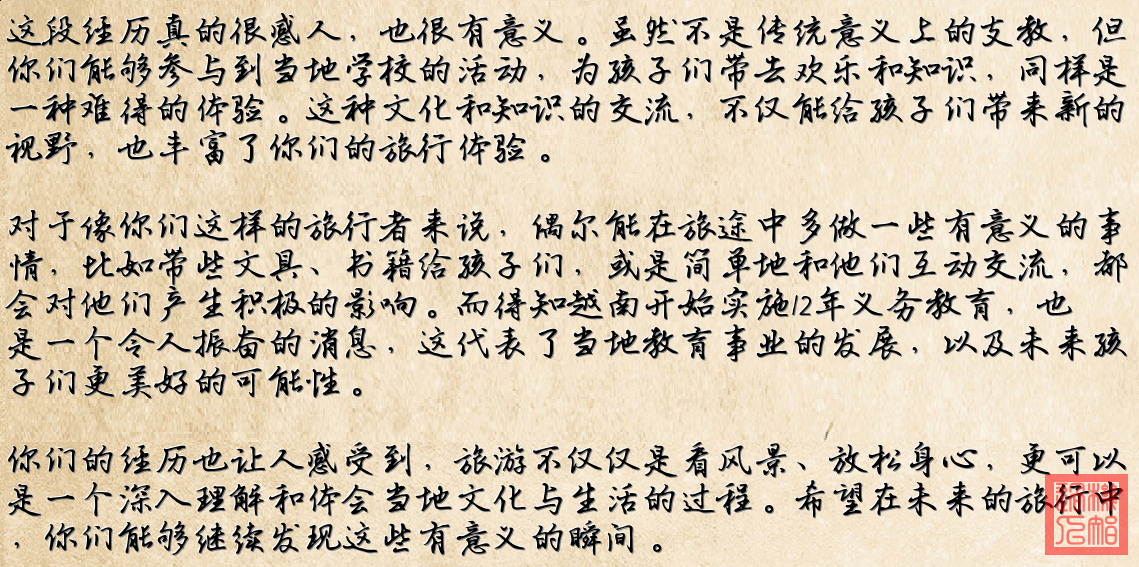 这段经历真的很感人，也很有意义。虽然不是传统意义上的支教，但
你们能够参与到当地学校的活动，为孩子们带去欢乐和知识，同样是
一种难得的体验。这种文化和知识的交流，不仅能给孩子们带来新的
视野，也丰富了你们的旅行体验。
对于像你们这样的旅行者来说，偶尔能在旅途中多做一些有意义的事
情，比如带些文具、书籍给孩子们，或是简单地和他们互动交流，都
会对他们产生积极的影响。而得知越南开始实施12年义务教育，也
是一个令人振奋的消息，这代表了当地教育事业的发展，以及未来孩
子们更美好的可能性。
你们的经历也让人感受到，旅游不仅仅是看风景、放松身心，更可以
是一个深入理解和体会当地文化与生活的过程。希望在未来的旅行中
，你们能够继续发现这些有意义的瞬间。